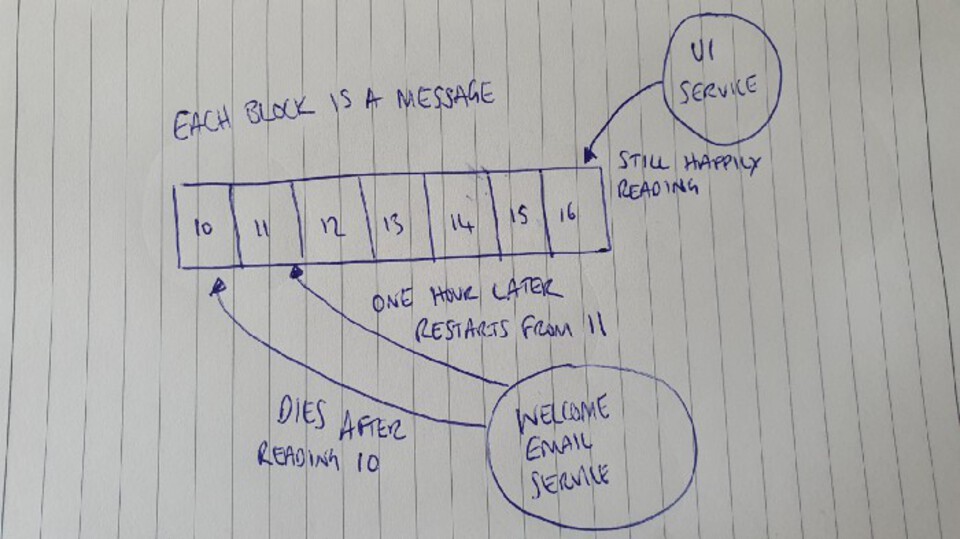 UI
SERVICE
EACH BLOCK IS A MESSAGE
STILL HAPPILY
READING
10 11 12 13 14 15 16
ONE HOUR LATER
RESTARTS FROM 11
DIES AFTER
READING 10
WELCOME
EMAIL
SERVICE